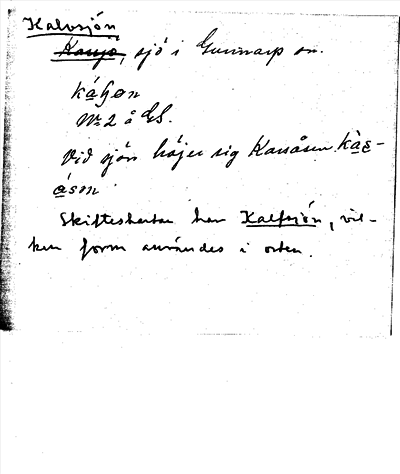 Kalvsjön
Kansjö, sjö i Gunnarp sn.
№ 2 å GS.
Vid sjön höjer sig Kansåsen
Skifteskartan har Kalfsjön, vil-
ken form användes i orten.